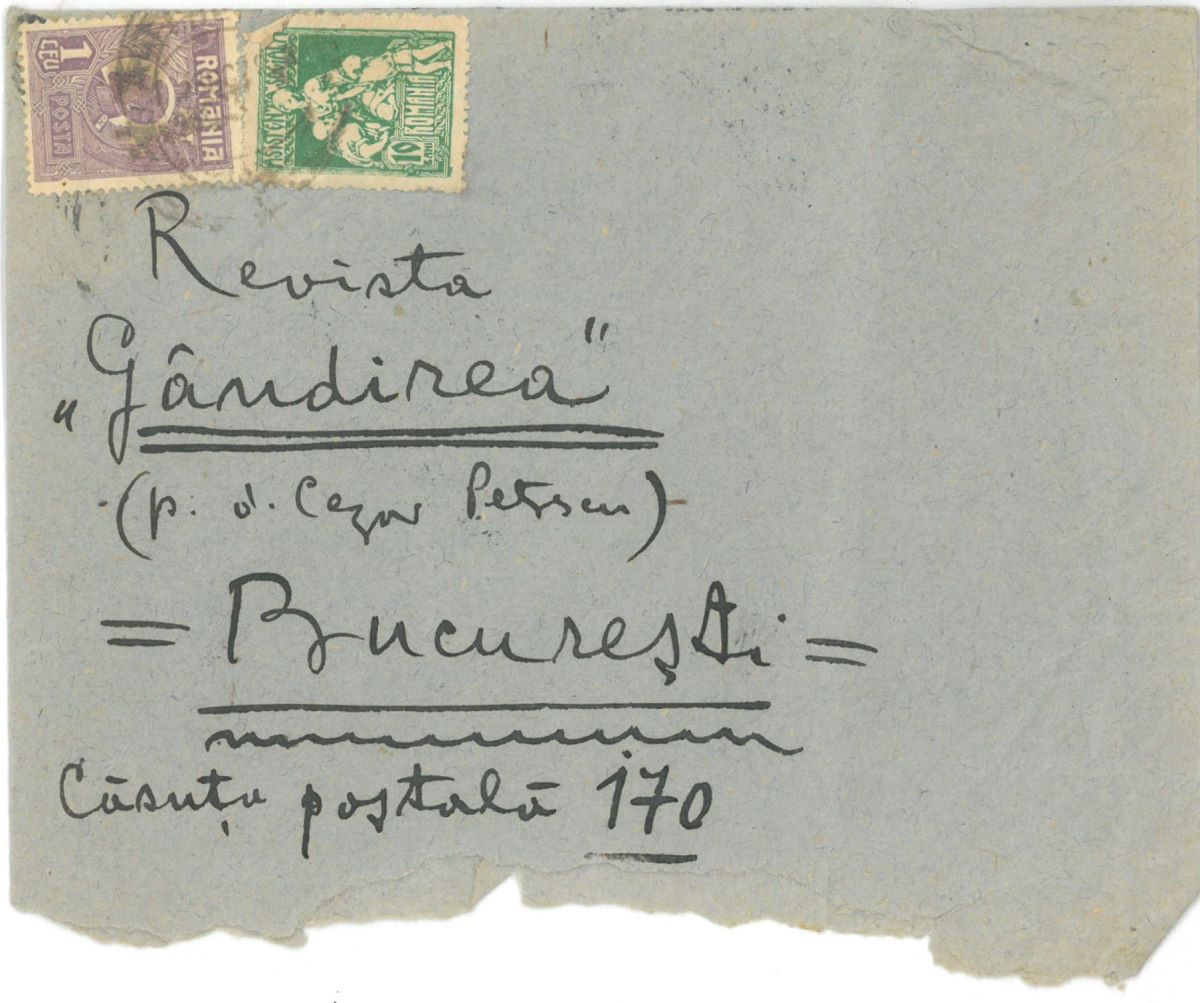 1 LEU
POSTA
ROMANIA
ROMANIA
10
BANI
Revista
„Gândirea"
(p. d. Cezar Petrescu)
= București =
Căsuța poștală 170